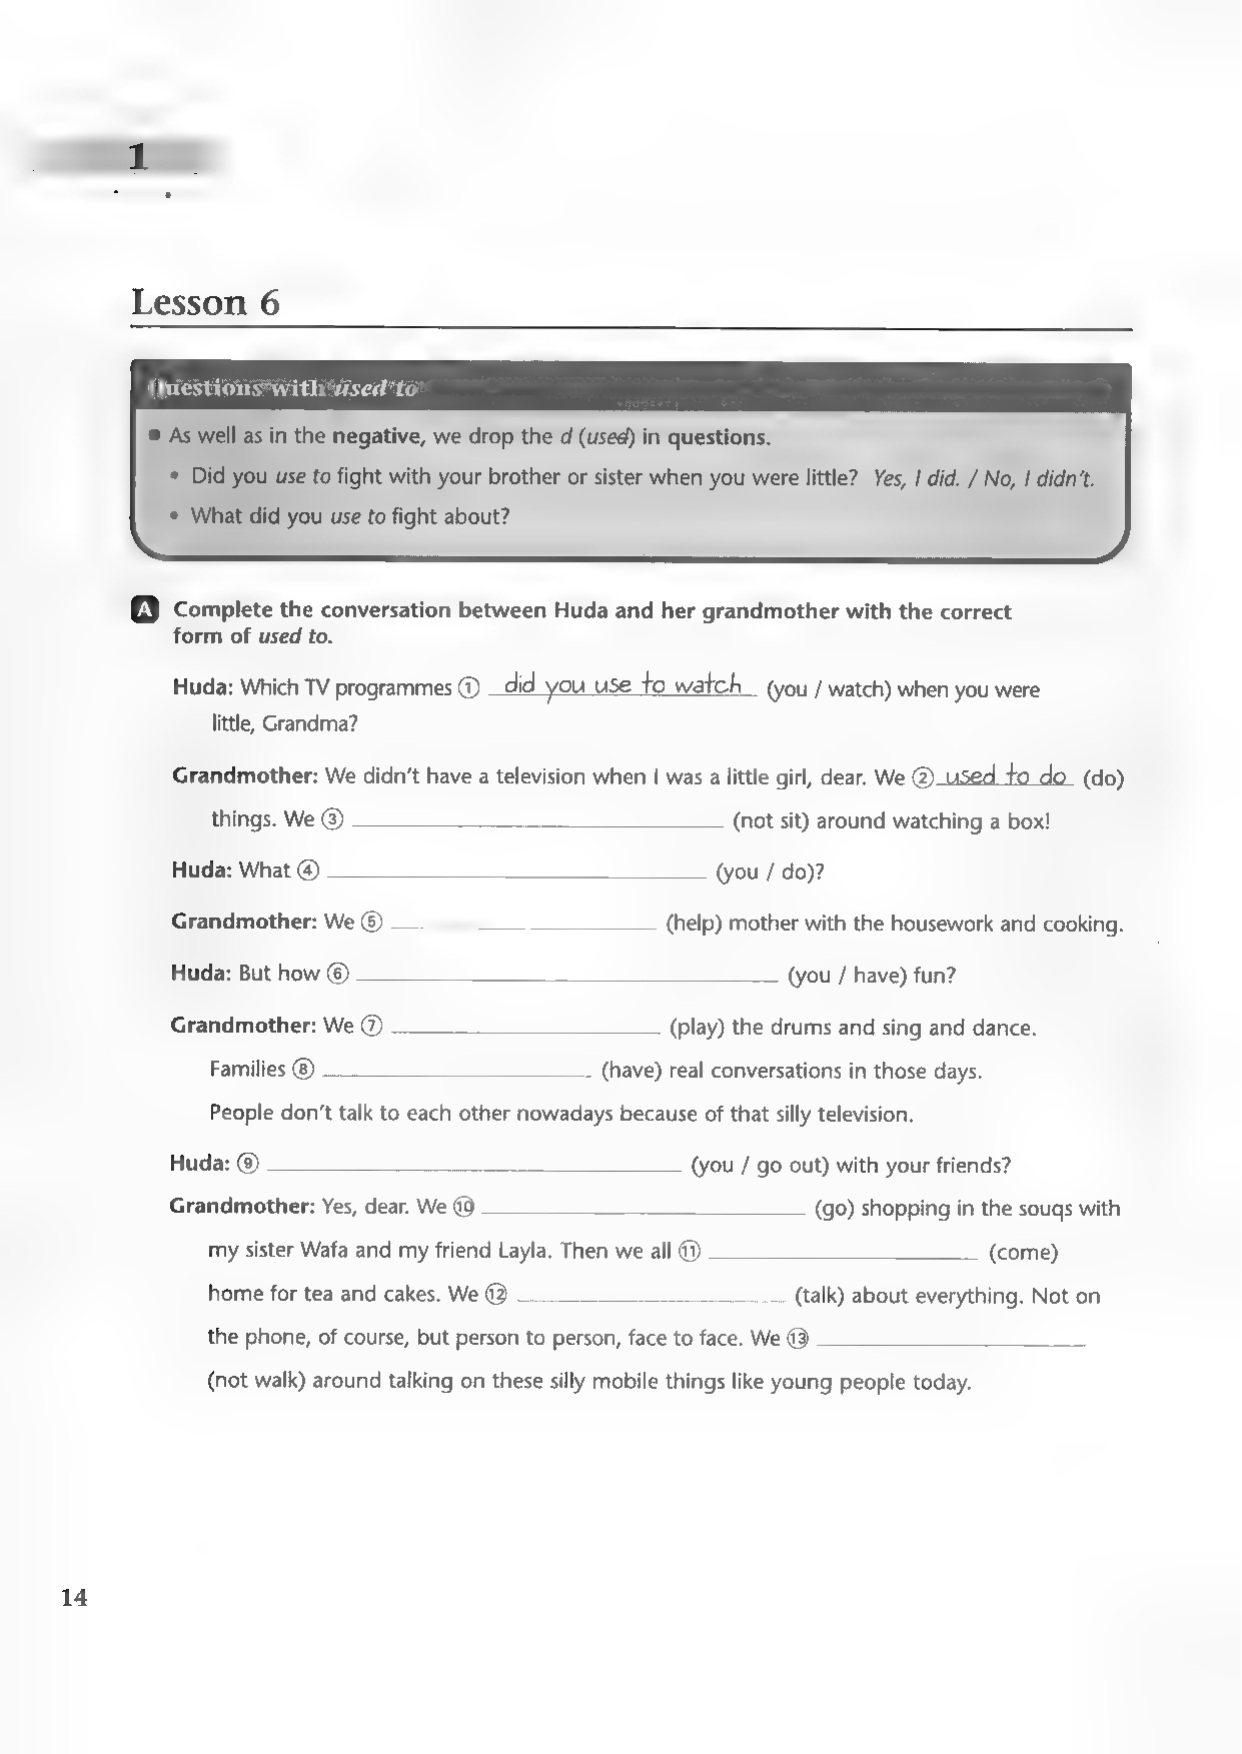 1
Lesson 6
Questions with used to
As well as in the negative, we drop the d (used) in questions.
Did you use to fight with your brother or sister when you were little? Yes, I did. / No, I didn't.
What did you use to fight about?
A Complete the conversation between Huda and her grandmother with the correct
form of used to.
Huda: Which TV programmes ① did you use to watch (you / watch) when you were
little, Grandma?
Grandmother: We didn't have a television when I was a little girl, dear. We ② used to do (do)
things. We ③ ____ (not sit) around watching a box!
Huda: What ④ ____ (you / do)?
Grandmother: We ⑤ ____ (help) mother with the housework and cooking.
Huda: But how ⑥ ____ (you / have) fun?
Grandmother: We ⑦ ____ (play) the drums and sing and dance.
Families ⑧ ____ (have) real conversations in those days.
People don't talk to each other nowadays because of that silly television.
Huda: ⑨ ____ (you / go out) with your friends?
Grandmother: Yes, dear. We ⑩ ____ (go) shopping in the souqs with
my sister Wafa and my friend Layla. Then we all ⑪ ____ (come)
home for tea and cakes. We ⑫ ____ (talk) about everything. Not on
the phone, of course, but person to person, face to face. We ⑬ ____
(not walk) around talking on these silly mobile things like young people today.
14